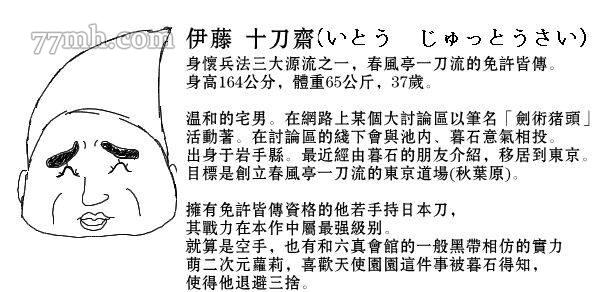 77mh.com
伊藤 十刀齋(いとう じゅっとうさい)
身懷兵法三大源流之一，春風亭一刀流的免許皆傳。
身高164公分，體重65公斤，37歲。
温和的宅男。在網路上某個大討論區以筆名「劍術猪頭」
活動著。在討論區的綫下會與池内、暮石意氣相投。
出身于岩手縣。最近經由暮石的朋友介紹，移居到東京。
目標是創立春風亭一刀流的東京道場(秋葉原)。
擁有免許皆傳資格的他若手持日本刀，
其戰力在本作中屬最强级别。
就算是空手，也有和六真會館的一般黑帶相仿的實力
萌二次元蘿莉，喜歡天使園園這件事被暮石得知，
使得他退避三捨。